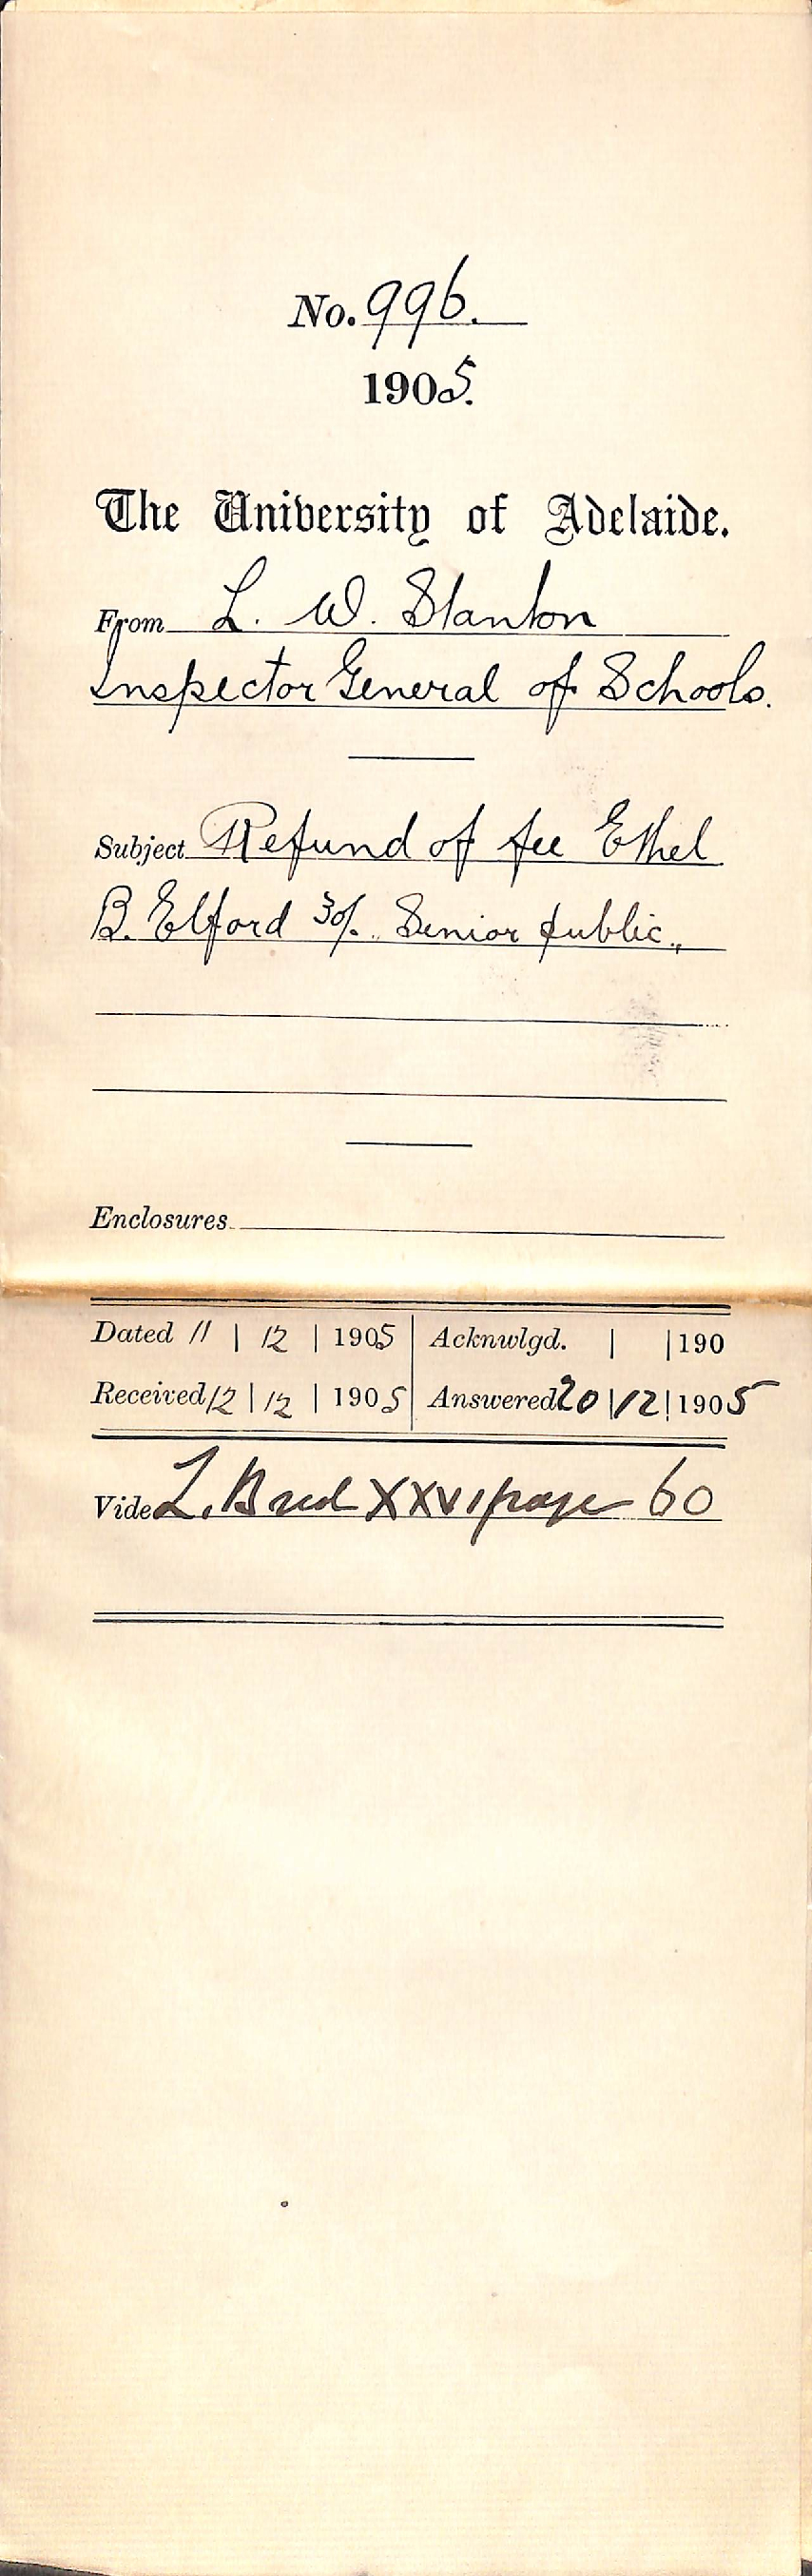 No. 996.
1905.
The University of Adelaide.
From L. W. Stanton
Inspector General of Schools.
Subject Refund of fee Ethel
B. Elford 30/. Senior public.
Enclosures
Dated 11 | 12 | 1905 Acknwlgd. | | 190
Received 12 | 12 | 1905 Answered 20 | 12 | 1905
Vide L. XXVI page 60